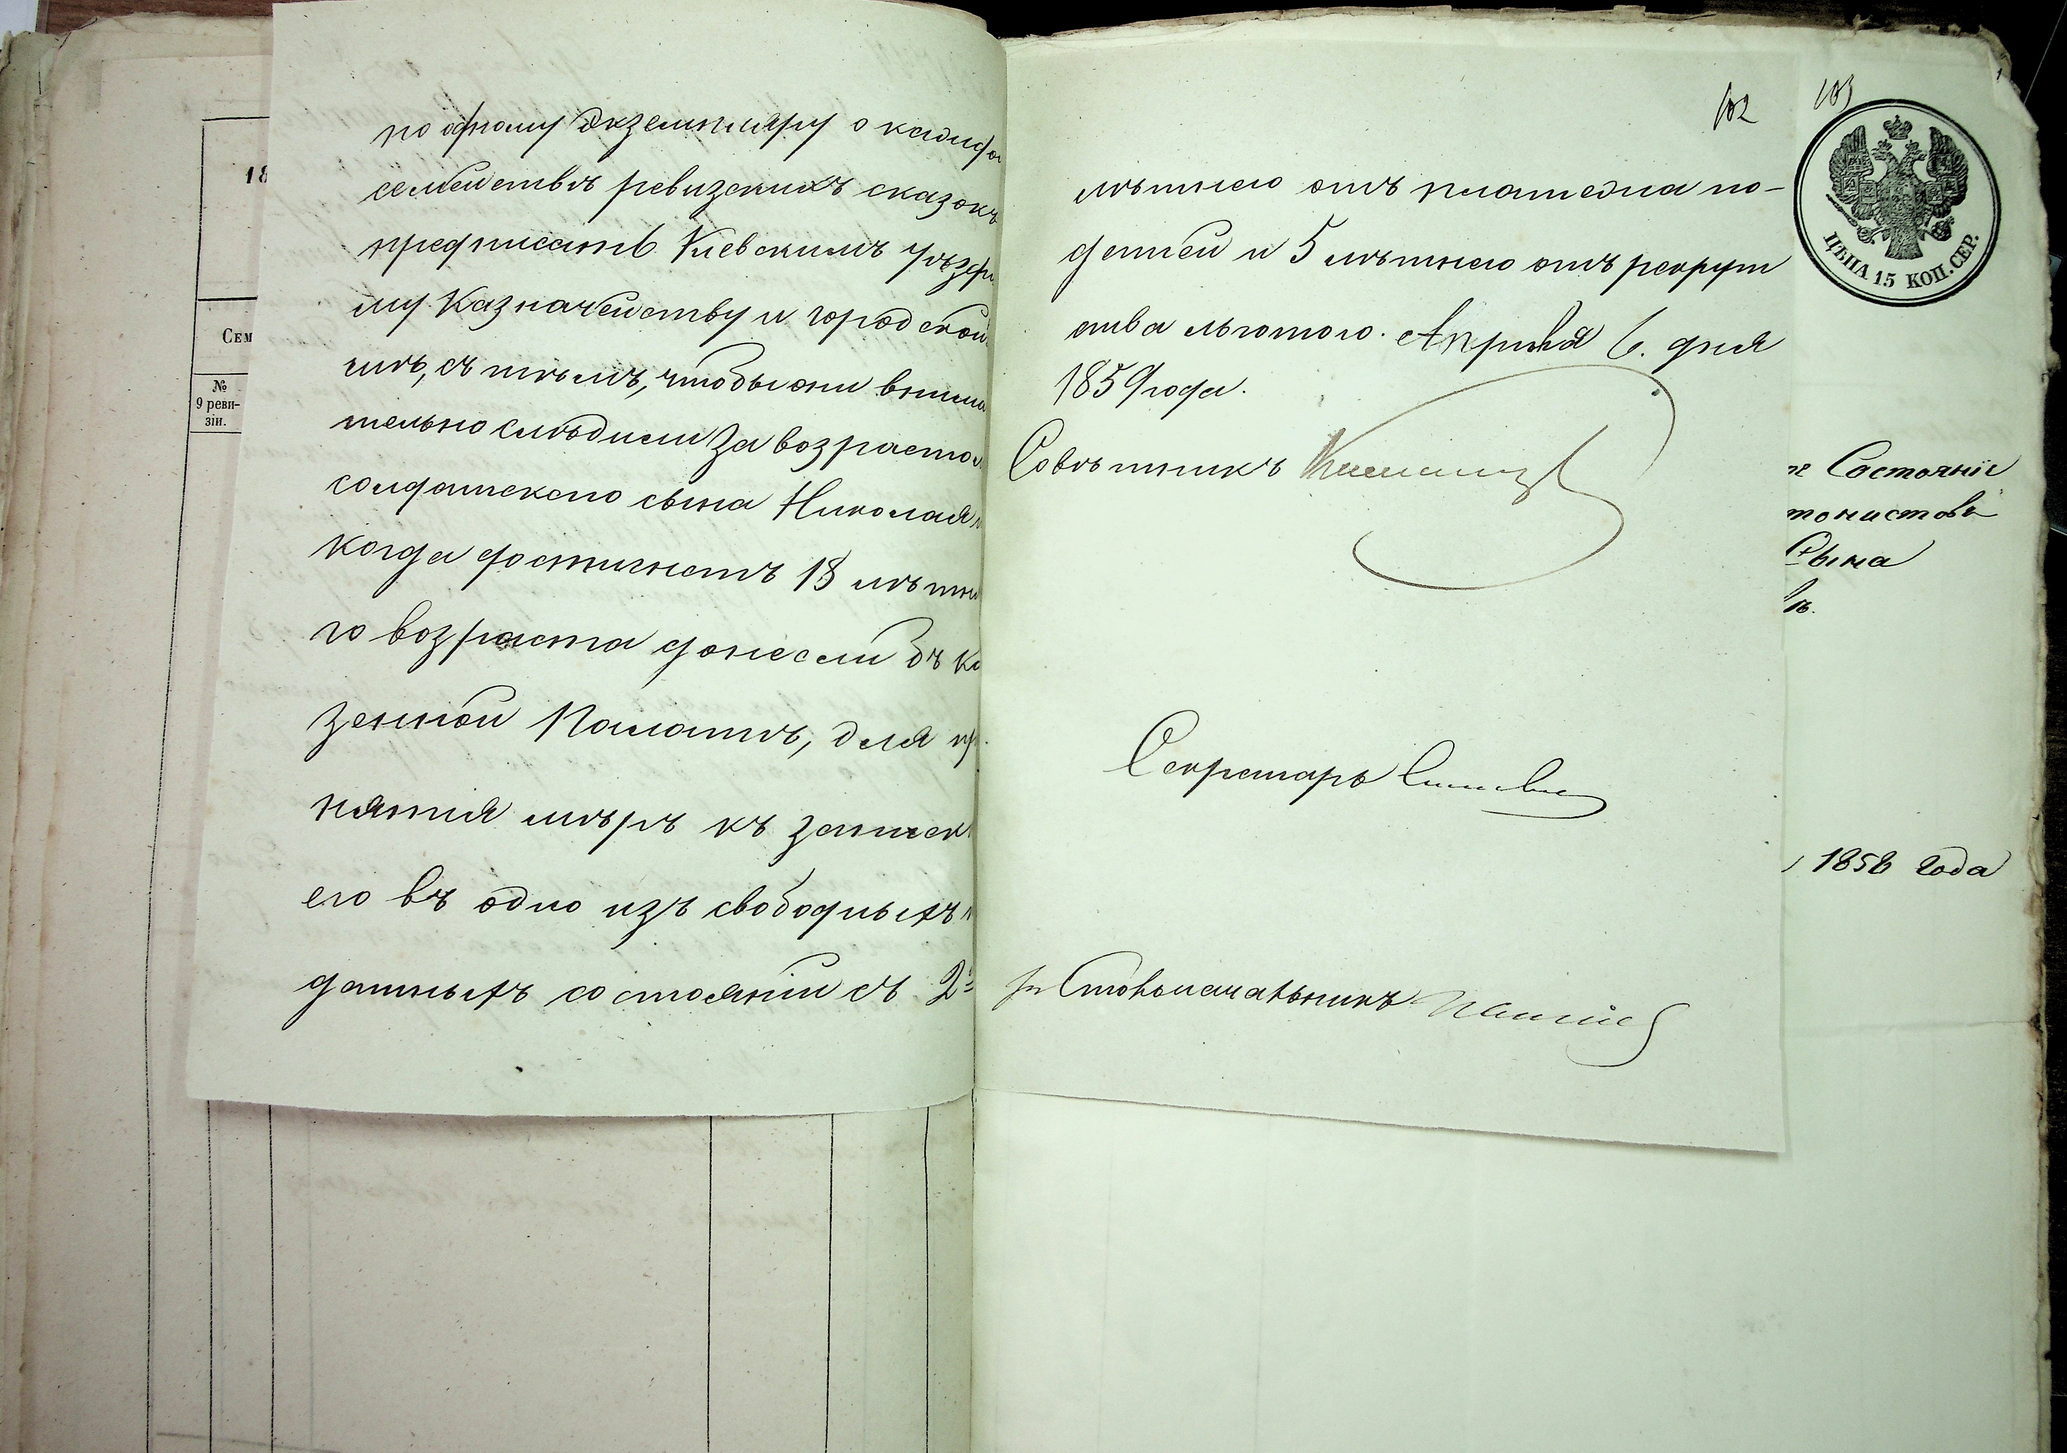 18
Сем
№
9 реви-
зіи.
по одному экземпляру о каждо
семействѣ ревизскихъ сказокъ
предписать Кіевскимъ Уѣздно
му Казначейству и городской
чтобы они внима
тельно слѣдили за возрастом
солдатскаго сына Николая и
когда достигнетъ 18 лѣтня
го возраста донесли бъ Ка
зенной Палатѣ, для пр
нятія мѣръ къ записк
его въ одно изъ свободныхъ п
датныхъ состояній съ 2х
102
лѣтнею отъ платежа по-
датей и 5 лѣтнею отъ рекрут
ства льготою. Апрѣля 6. дня
1859 года.
Совѣтникъ
Секретарь
Столоначальникъ
103
ЦѢНА 15 КОП. СЕР.
Состояніе
тонистова
Сына
1858 года